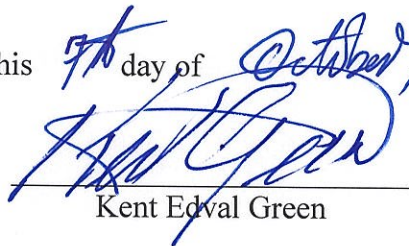 his 7th day of October,
Kent Green
Kent Edval Green